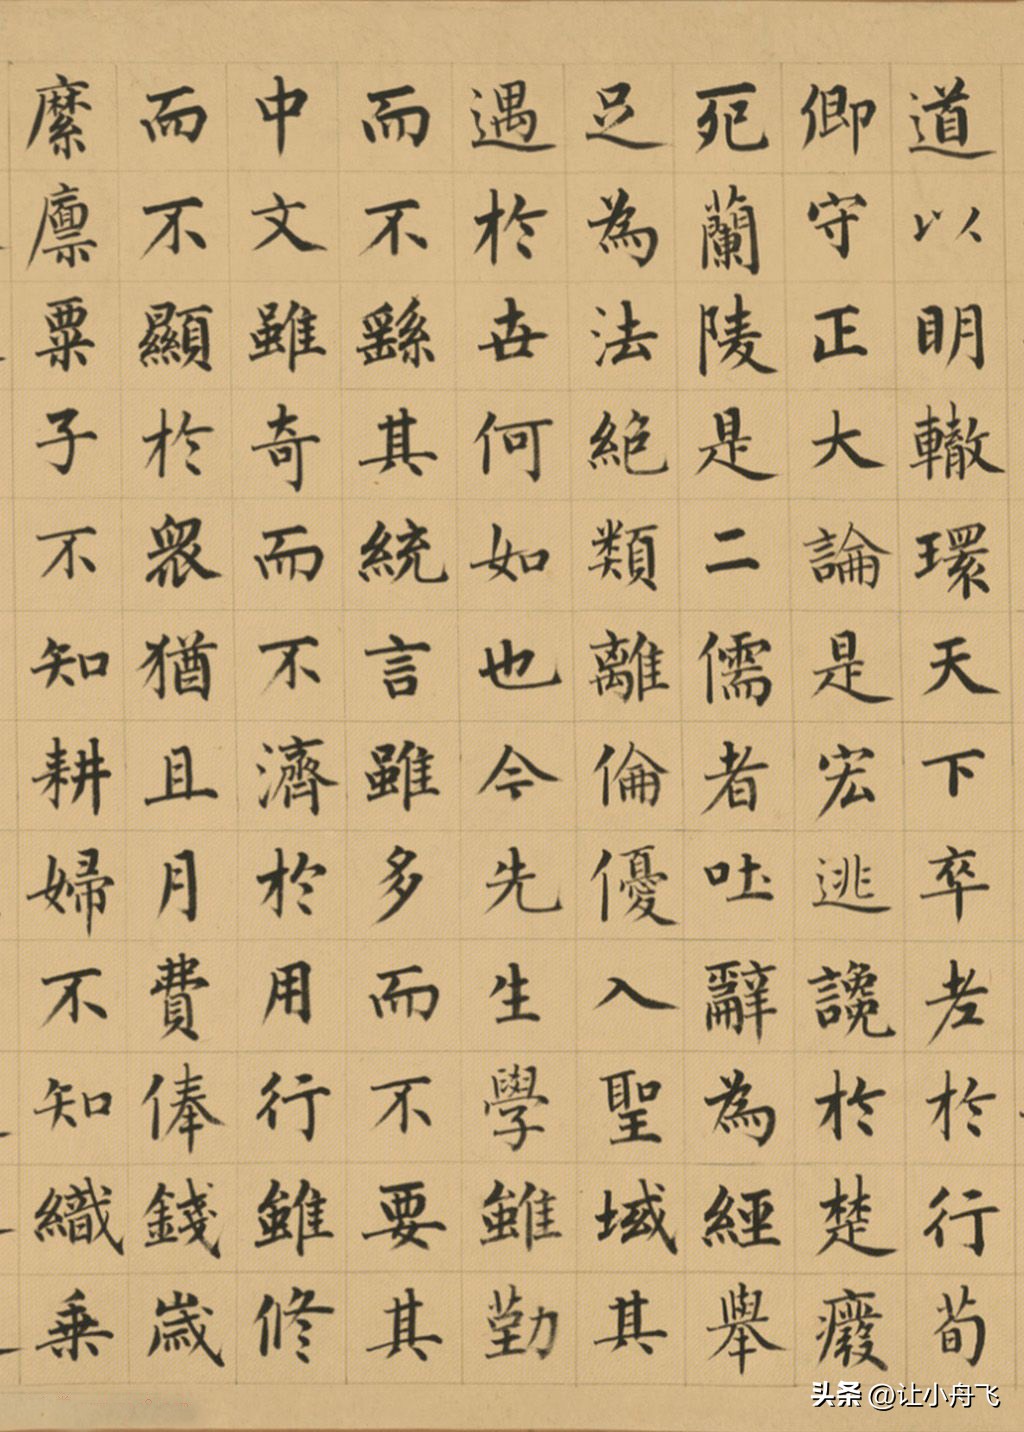 道以明轍環天下卒老於行荀
卿守正大論是宏逃讒於楚癈
死蘭陵是二儒者吐辭為經舉
足為法絕類離倫優入聖域其
遇於世何如也今先生學雖勤
而不繇其統言雖多而不要其
中文雖奇而不濟於用行雖修
而不顯於衆猶且月費俸錢歲
縻廪粟子不知耕婦不知織乗
头条 @让小舟飞